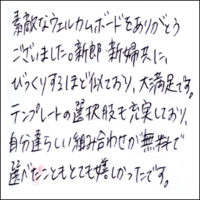 素敵なウェルカムボードをありがとう
ございました。新郎新婦共に、
びっくりするほど似ており、大満足です。
テンプレートの選択肢も充実しており、
自分達らしい組み合わせが無料で
選べたこともとても嬉しかったです。